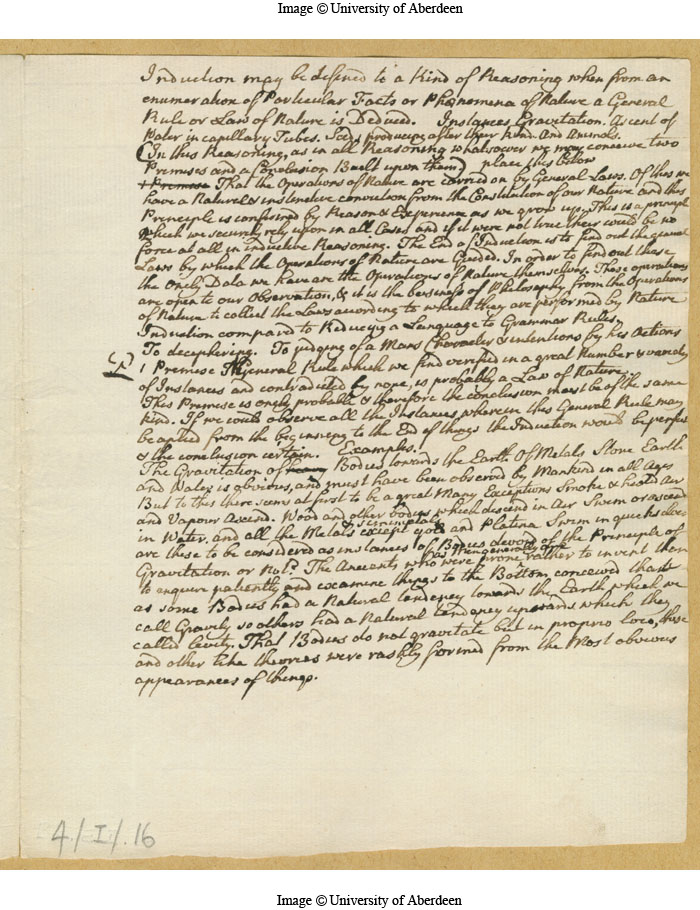 Image © University of Aberdeen
Induction may be defined to a Kind of Reasoning when from an
enumeration of Particular Facts or Phænomena of Nature a General
Rule or Law of Nature is Deduced. Instances Gravitation. Ascent of
Water in capillary Tubes. Seeds producing after their Kind. And Animals.
(In this Reasoning, as in all Reasoning whatsoever we may conceive two
Premises and a Conclusion Built upon them) place this below
1 Premise That the Operations of Nature are carried on by General Laws. Of this we
have a Natural & instinctive conviction from the Constitution of our Nature and this
Principle is confirmed by Reason & Experience as we grow up. This is a principle
which we securely rely upon in all Cases and if it were not true there would be no
force at all in inductive Reasoning. The End of Induction is to find out the general
Laws by which the Operations of Nature are Guided. In order to find out these
the Onely Data we have are the Operations of Nature themselves. These operations
are open to our Observation, & it is the business of Philosophy from the Operations
of Nature to collect the Laws according to which they are performed by Nature
Induction compard to Reducing a Language to Grammar Rules,
To decyphering. To judging of a Mans Character & intentions by his Actions
1 Premise A General Rule which we find verified in a great Number & variety
of Instances and contradicted by none, is probably a Law of Nature.
This Premise is onely probable & therefore the conclusion must be of the same
Kind. If we could observe all the Instances, wherein this General Rule may
be applied from the beginning to the End of things the Induction would be perfect
& the conclusion certain. Examples.
The Gravitation of heavy Bodies towards the Earth Of Metals Stone Earth
and Water is obvious, and must have been observed by Mankind in all Ages
But to this there seems at first to be a great Many Exceptions Smoke & heated Air
and Vapour Ascend. Wood and other bodies which descend in Air Swim or ascend
in Water, and all the Metals & semimetals except gold and Platina Swim in quicksilver
are these to be considered as instances of Bodies devoid of the Principle of
Gravitation or Not? The Ancients who were prone rather to invent than
to enquire patiently and examine things to the Bottom, conceived that
as some Bodies had a Natural tendency towards the Earth which we
call Gravity so others had a Natural tendency upwards which they
called levity. That Bodies do not gravitate but in proprio loco, these
and other like theories were rashly formed from the Most obvious
appearances of things.
4/I/.16
Image © University of Aberdeen